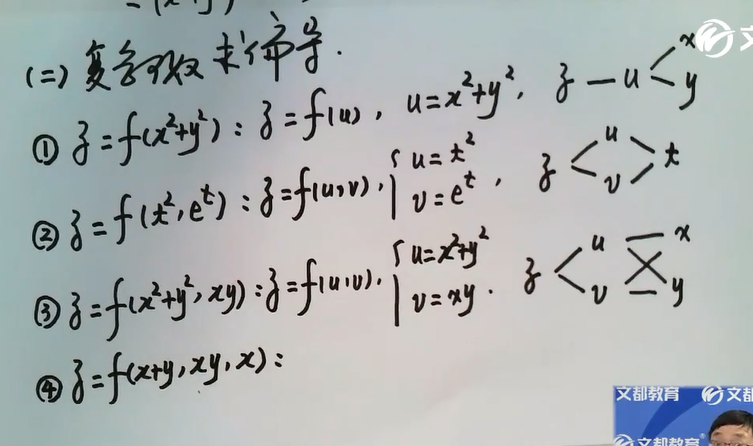 (二) 复合函数求偏导.
① z=f(x²+y²): z=f(u), u=x²+y², z — u < x y
② z=f(t², eᵗ): z=f(u,v). { u=t² v=eᵗ , z < u v > t
③ z=f(x²+y², xy): z=f(u,v). { u=x²+y² v=xy . z < u v x y
④ z=f(x+y, xy, x):
文都教育 文都
文都教育